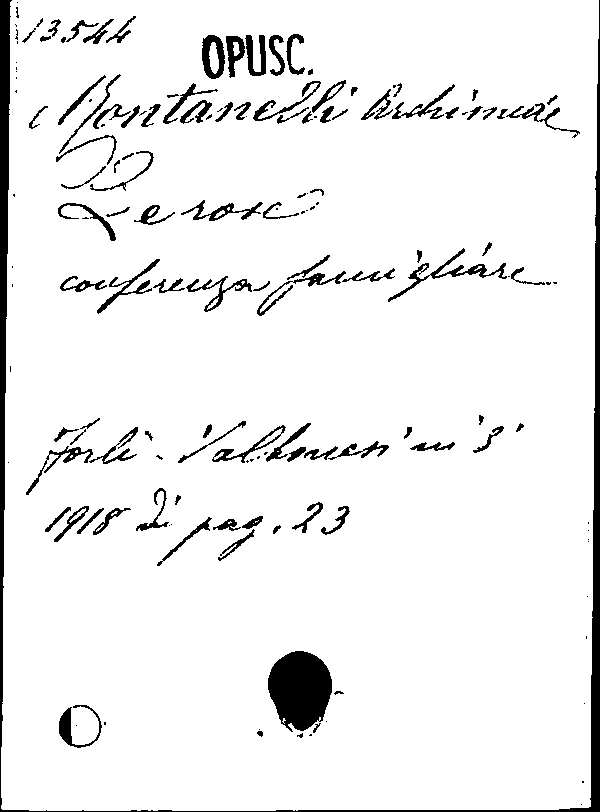 13544
OPUSC.
Montanelli Archimede
Le rose
conferenza famigliare
Forlì - Valbonesi in 8°
1918 di pag. 23